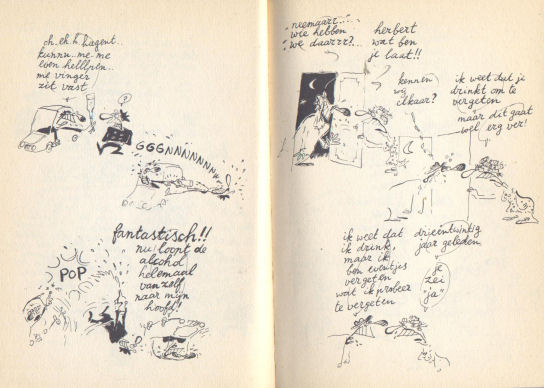 oh.eh.h.hagent..
kunnu..me-me
even hellpen..
me vinger
zit vast
?
GGGNNNNNNNN
POP
fantastisch!!
nu loopt de
alcohol
helemaal
van zelf
naar mijn
hoofd!
niemaart.....
wie hebben
we daarrr?...
herbert
wat ben
je laat!!
kennen
wij
elkaar?
ik weet dat je
drinkt om te
vergeten
maar dit gaat
wel erg ver!
ik weet dat
ik drink,
maar ik
ben eventjes
vergeten
wat ik probeer
te vergeten
drieentwintig
jaar geleden
je
zei
"ja"